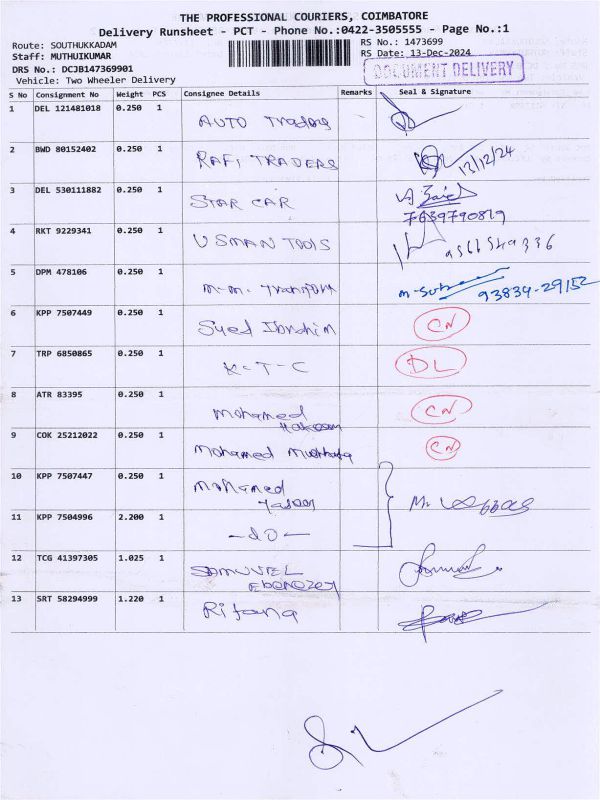 THE PROFESSIONAL COURIERS, COIMBATORE
Delivery Runsheet - PCT - Phone No.:0422-3505555 - Page No.:1
Route: SOUTHUKKADAM
RS No.: 1473699
Staff: MUTHUIKUMAR
RS Date: 13-Dec-2024
DRS No.: DCJB147369901
DOCUMENT DELIVERY
Vehicle: Two Wheeler Delivery
S No Consignment No Weight PCS Consignee Details Remarks Seal & Signature
1 DEL 121481018 0.250 1 AUTO Trading
2 BWD 80152402 0.250 1 RAFI TRADERS 13/12/24
3 DEL 530111882 0.250 1 STAR CAR
7639790819
4 RKT 9229341 0.250 1 USMAN TOOLS
5 DPM 478106 0.250 1 M.M. Transport 93834-29152
6 KPP 7507449 0.250 1 Syed Ibrahim CN
7 TRP 6850865 0.250 1 K-T-C DL
8 ATR 83395 0.250 1 Mohamed CN
9 COK 25212022 0.250 1 Mohamed CN
10 KPP 7507447 0.250 1 Mohamed
11 KPP 7504996 2.200 1 -do-
12 TCG 41397305 1.025 1 SAMUVEL
Ebenezer
13 SRT 58294999 1.220 1 Rifana